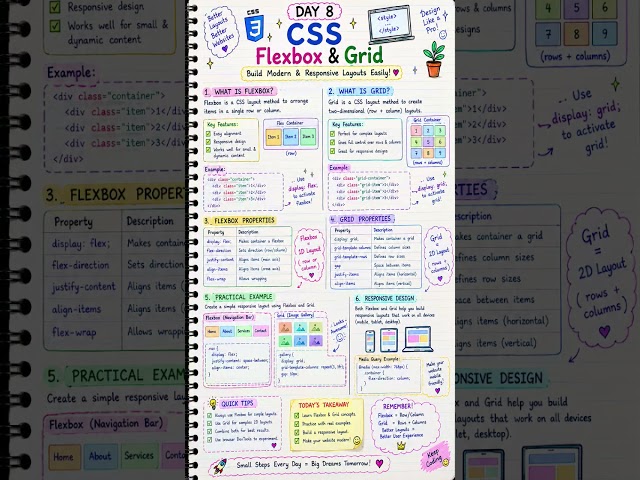 Better
Layouts
Better
Websites
CSS
3
DAY 8
CSS
Flexbox & Grid
Build Modern & Responsive Layouts Easily!
<style>
</style>
Design
Like a
Pro!
1. WHAT IS FLEXBOX?
Flexbox is a CSS layout method to arrange
items in a single row or column.
Key Features:
Easy alignment
Responsive design
Works well for small &
dynamic content
Flex Container
Item 1 Item 2 Item 3
(row)
Example:
<div class="container">
<div class="item">1</div>
<div class="item">2</div>
<div class="item">3</div>
</div>
Use
display: flex;
to activate
flexbox!
2. WHAT IS GRID?
Grid is a CSS layout method to create
two-dimensional (row + column) layouts.
Key Features:
Perfect for complex layouts
Gives full control over rows & columns
Great for responsive designs
Grid Container
1 2 3
4 5 6
7 8 9
(rows + columns)
Example:
<div class="grid-container">
<div class="grid-item">1</div>
<div class="grid-item">2</div>
<div class="grid-item">3</div>
</div>
Use
display: grid;
to activate
grid!
3. FLEXBOX PROPERTIES
Property Description
display: flex; Makes container a flexbox
flex-direction Sets direction (row/column)
justify-content Aligns items (main axis)
align-items Aligns items (cross axis)
flex-wrap Allows wrapping
Flexbox
=
1D Layout
( row or
column )
4. GRID PROPERTIES
Property Description
display: grid; Makes container a grid
grid-template-columns Defines column sizes
grid-template-rows Defines row sizes
gap Space between items
justify-items Aligns items (horizontal)
align-items Aligns items (vertical)
Grid
=
2D Layout
( rows +
columns )
5. PRACTICAL EXAMPLE
Create a simple responsive layout using Flexbox and Grid.
Flexbox (Navigation Bar)
Home About Services Contact
nav {
display: flex;
justify-content: space-between;
align-items: center;
}
Grid (Image Gallery)
gallery {
display: grid;
grid-template-columns: repeat(3, 1fr);
gap: 10px;
}
6. RESPONSIVE DESIGN
Both Flexbox and Grid help you build
responsive layouts that work on all devices
(mobile, tablet, desktop).
Media Query Example:
@media (max-width: 768px) {
.container {
flex-direction: column;
}
}
Make your
website
mobile
friendly!
QUICK TIPS
Always use Flexbox for simple layouts.
Use Grid for complex 2D layouts.
Combine both for best results.
Use browser DevTools to experiment.
TODAY'S TAKEAWAY
Learn Flexbox & Grid concepts.
Practice with real examples.
Build a responsive layout.
Make your website modern!
REMEMBER!
Flexbox = Row/Column
Grid = Rows + Columns
Better Layouts =
Better User Experience
Keep
Coding
Small Steps Every Day = Big Dreams Tomorrow!